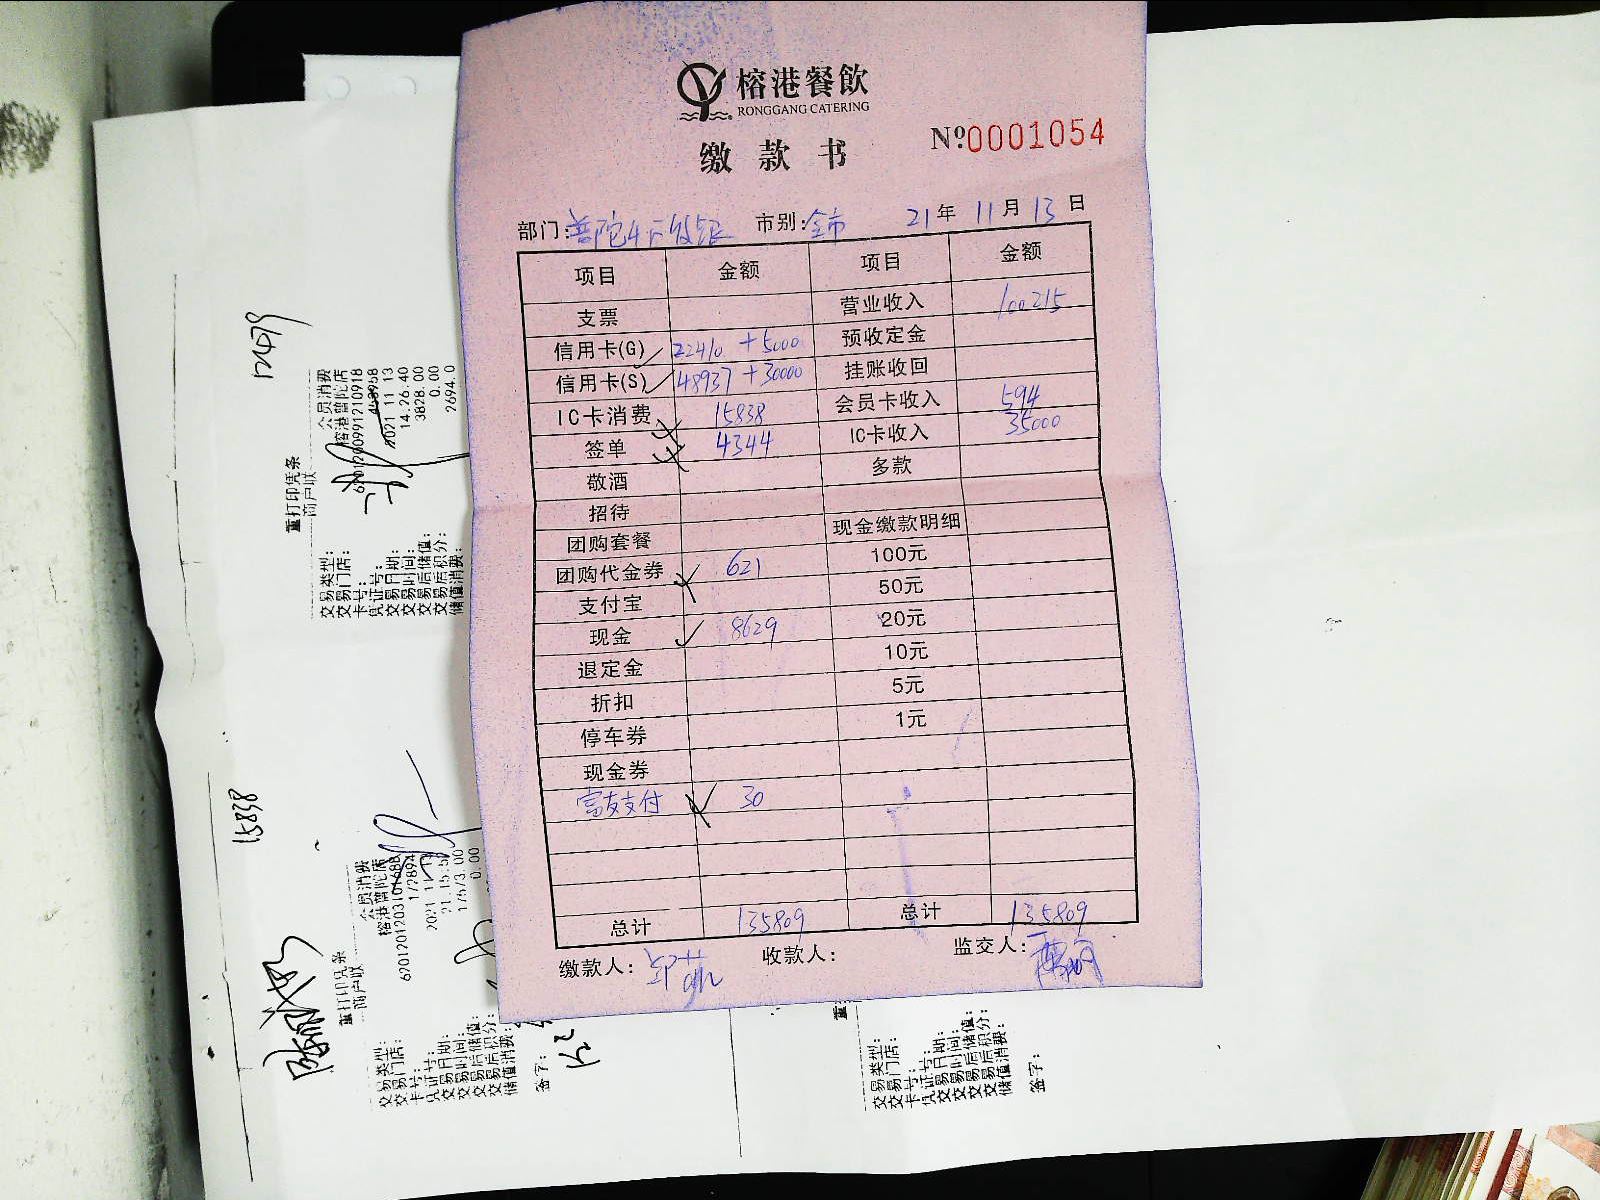 榕港餐飲
RONGGANG CATERING
缴款书
№0001054
部门: 普陀 市别: 全市 21年 11月 13日
项目 金额 项目 金额
支票 营业收入 100215
信用卡(G) 22410 +5000 预收定金
信用卡(S) 48937 +30000 挂账收回
IC卡消费 15838 会员卡收入 594
签单 4344 IC卡收入 35000
敬酒 多款
招待
团购套餐 现金缴款明细
团购代金券 621 100元
支付宝 50元
现金 8629 20元
退定金 10元
折扣 5元
停车券 1元
现金券
富友支付 30
总计 135809 总计 135809
缴款人: 收款人: 监交人:
12479
重打印凭条
商户联
交易类型: 会员消费
交易门店: 榕港普陀店
卡号: 6201200991210918
凭证号:
交易日期: 2021 11 13
交易时间: 14.26.40
交易后储值: 3828.00
交易后积分: 0.00
储值消费: 2694.0
15838
重打印凭条
商户联
交易类型: 会员消费
交易门店: 榕港普陀店
卡号:
凭证号:
交易日期:
交易时间:
交易后储值:
交易后积分: 0.00
储值消费:
签字:
交易类型:
交易门店:
卡号:
凭证号:
交易日期:
交易时间:
交易后储值:
交易后积分:
储值消费:
签字: